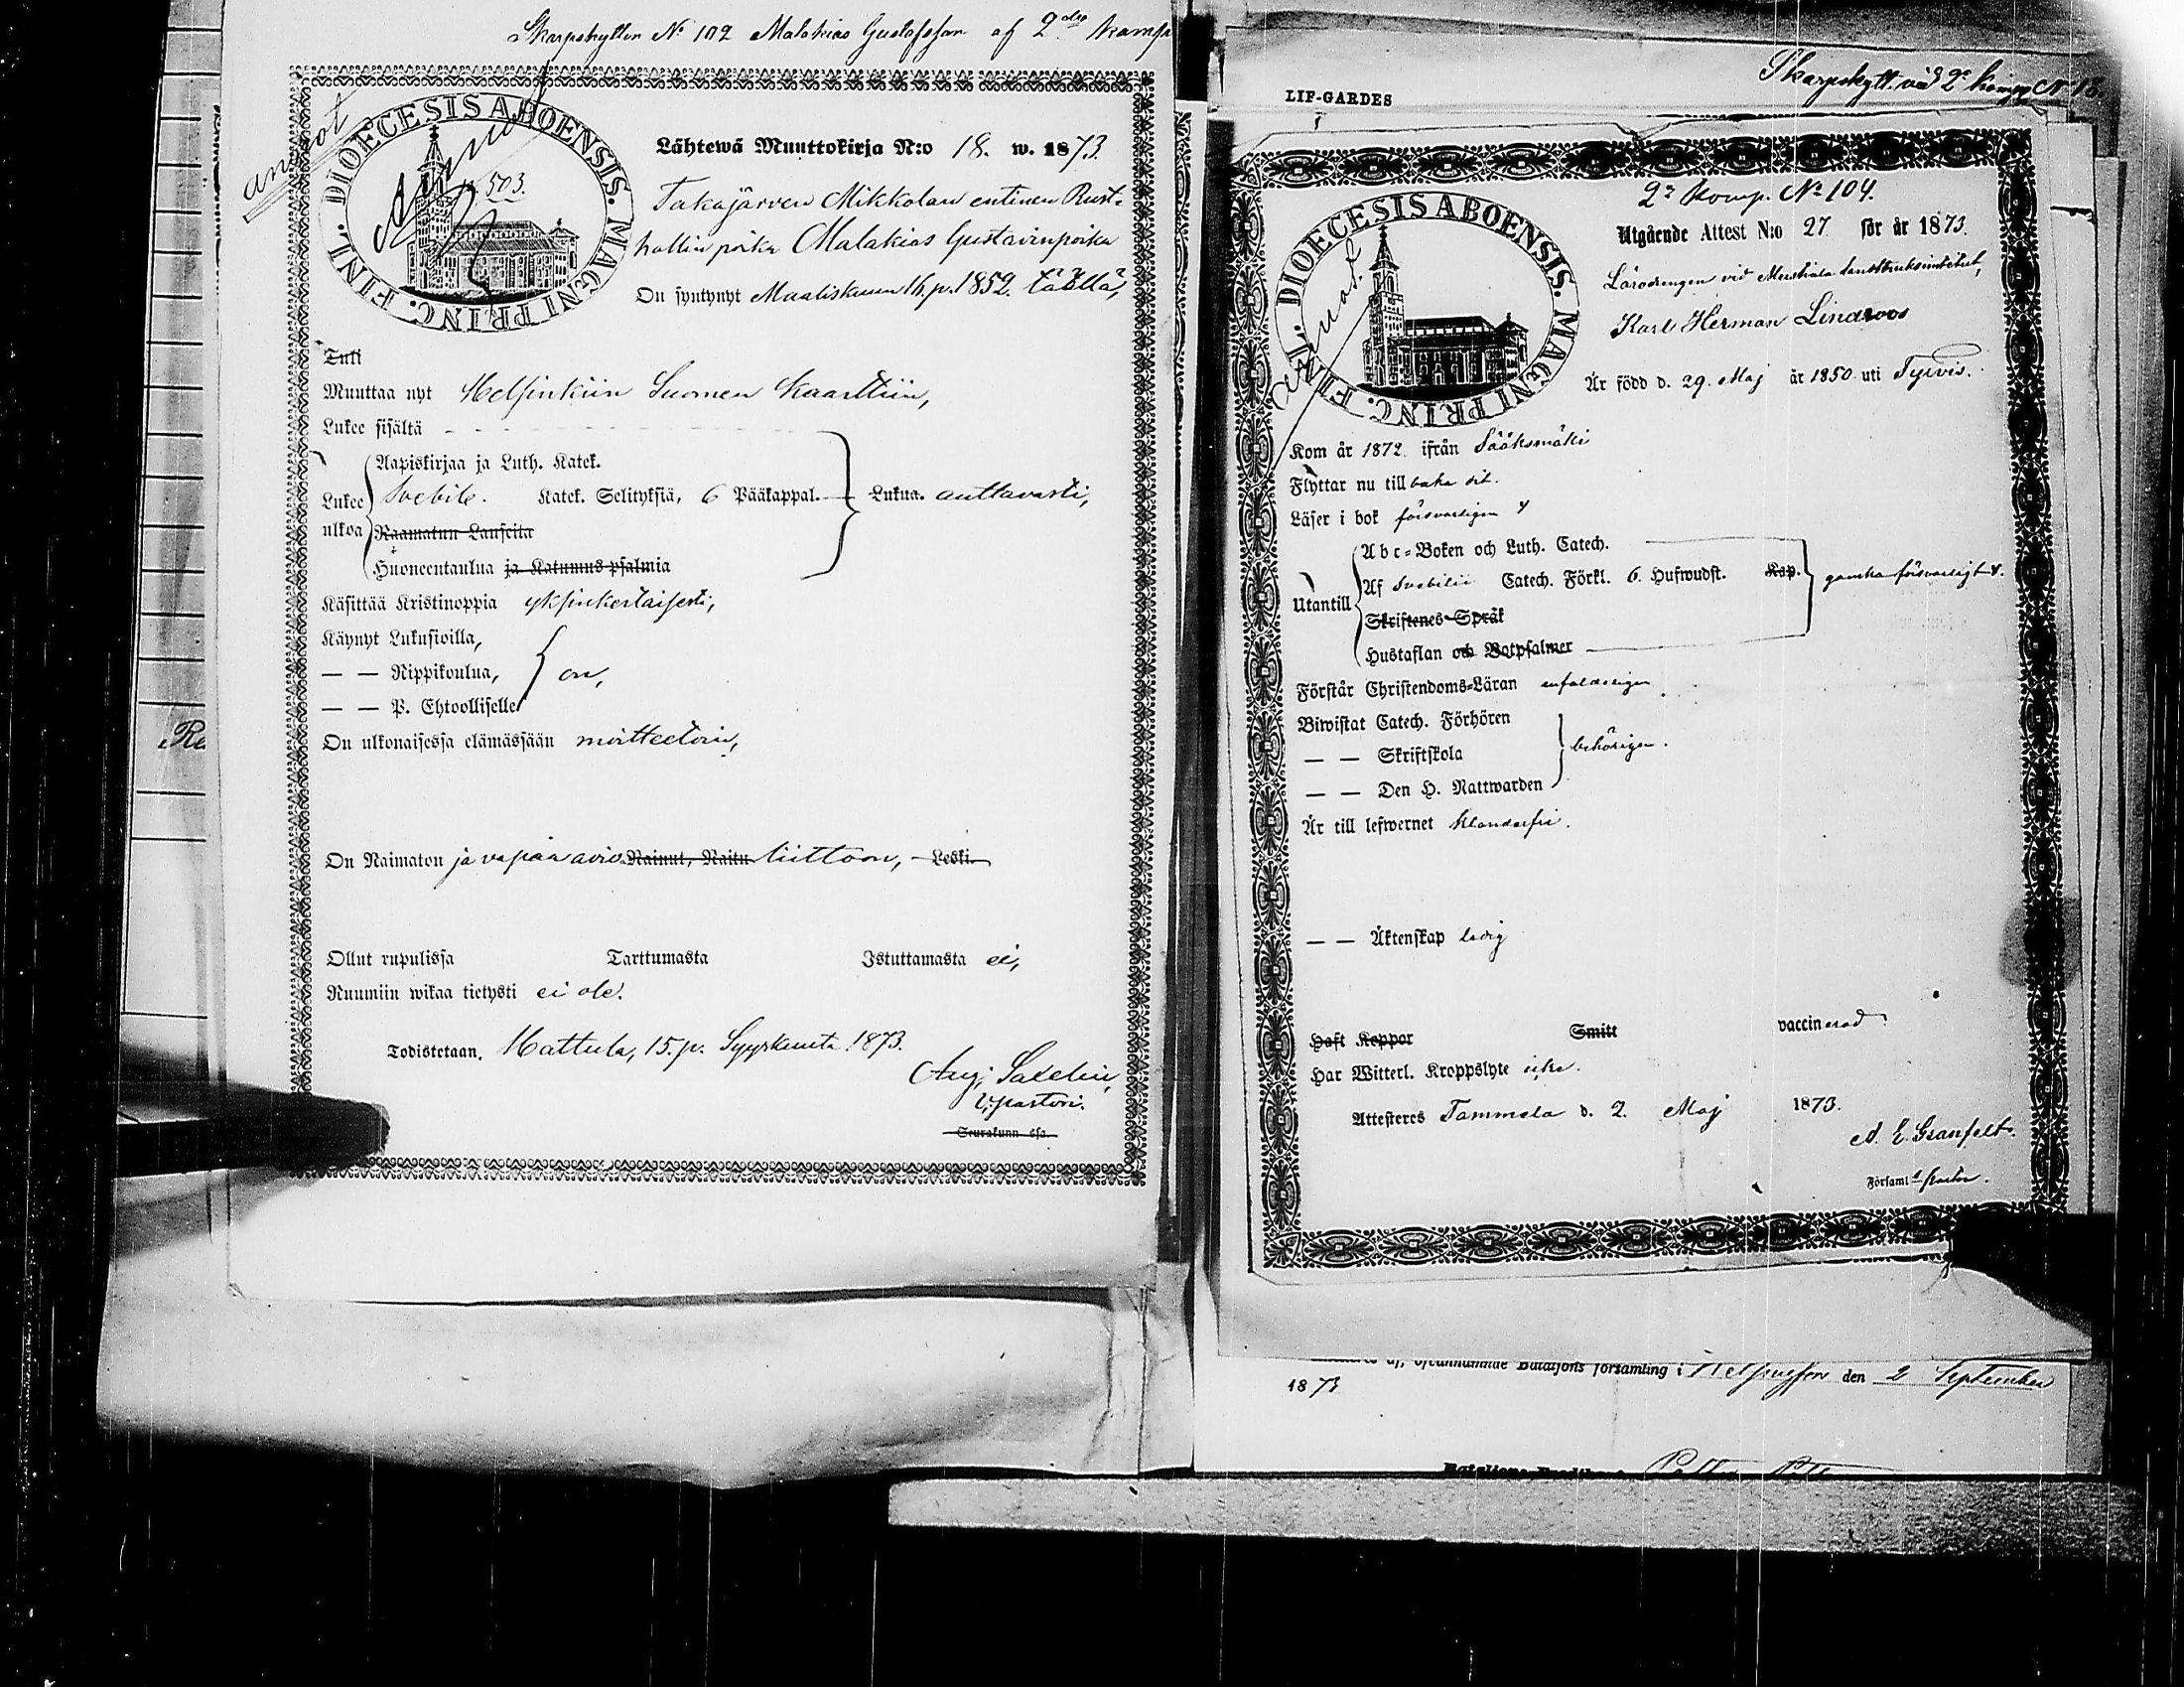 Skarpskytten No 102 Malakias Gustafsson af 2dra Komp
DIOECESIS ABOENSIS. MAGNI PRINC. FINL.
503.
Lähtewä Muuttokirja N:o 18. w. 1873.
Takajärven Mikkolan entinen Rust-
hollin poika Malakias Gustavinpoika
On syntynyt Maaliskuun 16. p. 1852. täällä,
Tuli
Muuttaa nyt Helsinkiin Suomen Kaartiin,
Lukee sisältä
Aapiskirjaa ja Luth. Katek.
Lukee ulkoa Svebile. Katek. Selityksiä, 6 Pääkappal. Lukua. auttavasti,
Raamatun Lauseita
Huoneentaulua ja Katumus psalmia
Käsittää Kristinoppia yksinkertaisesti,
Käynyt Lukusioilla,
— — Rippikoulua, on,
— — P. Ehtoolliselle
On ulkonaisessa elämässään moitteetoin,
On Naimaton ja vapaa avio Nainut, Naitu liittoon, Leski.
Ollut rupulissa Tarttumasta Istuttamasta ei,
Ruumiin wikaa tietysti ei ole.
Todistetaan, Hattula, 15. p. Syyskuuta 1873.
Aug. Saxelin,
V. pastori.
Seurakunn ssa.
LIF-GARDES
Skarpskytt. vid 2a Komp No 18.
2a Komp. No 104.
DIOECESIS ABOENSIS. MAGNI PRINC. FINL.
Utgående Attest N:o 27 för år 1873.
Lärodrengen vid Mustiala landtbruksinstitut,
Karl Herman Lindroos
Är född d. 29. Maj år 1850. uti Tyrvis.
Kom år 1872. ifrån Sääksmäki
Flyttar nu till baka dit.
Läser i bok försvarligen
Abc-Boken och Luth. Catech.
Utantill Af Svebilii Catech. Förkl. 6. Hufwudst. Kap. ganska försvarligt
Skriftenes Språk
Hustaflan och Botpsalmer
Förstår Christendoms-Läran enfaldeligen
Biwistat Catech. Förhören
— — Skriftskola behörigen.
— — Den H. Nattwarden
Är till lefwernet klanderfri.
— — Äktenskap ledig
Haft Koppor Smitt vaccinerad
Har Witterl. Kroppslyte icke.
Attesteres Tammela d. 2. Maj 1873.
A. E. Granfelt.
Församl. Pastor.
Bataljons församling i Helsingfors den 2 September
1873